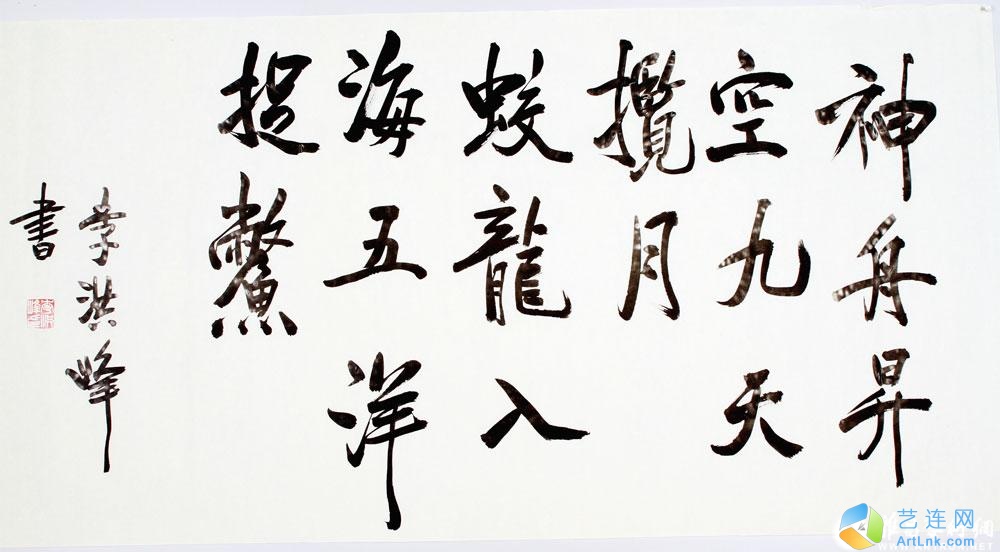 神舟昇
空九天
攬月
蛟龍入
海五洋
捉鱉
李洪峰
書
艺连网
ArtLnk.com